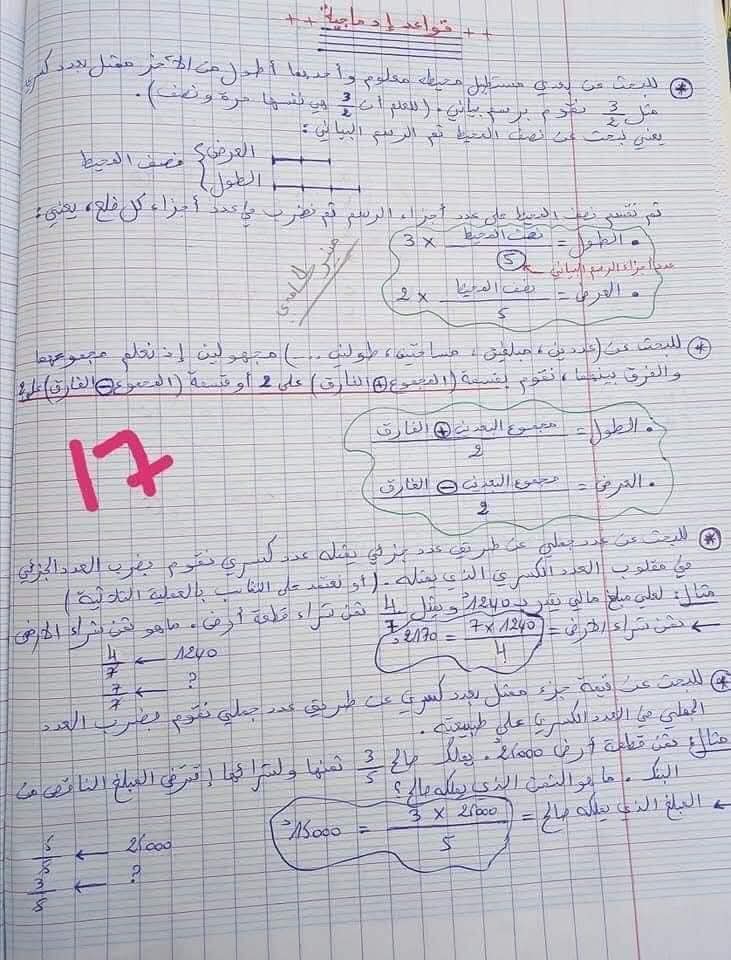 ++ قواعد إدماجية ++
* للبحث عن بعدي مستطيل محيطه معلوم وأحدهما أطول من الآخر ممثل بعدد كسري
مثل 3/2 نقوم برسم بياني. (للعلم أن 3/2 هي نفسها مرة ونصف).
يعني نبحث عن نصف المحيط ثم الرسم البياني:
العرض
نصف المحيط
الطول
ثم نقسم نصف المحيط على عدد أجزاء الرسم ثم نضرب في عدد أجزاء كل ضلع، يعني:
• الطول = نصف المحيط / 5 × 3
عدد أجزاء الرسم البياني
• العرض = نصف المحيط / 5 × 2
* للبحث عن (عددين، مبلغين، مسافتين، طولين ...) مجهولين إذ نعلم مجموعهما
والفرق بينهما، نقوم بقسمة (المجموع + الفارق) على 2 أو قسمة (المجموع - الفارق) على 2
• الطول = مجموع البعدين + الفارق / 2
17
• العرض = مجموع البعدين - الفارق / 2
* للبحث عن عدد جملي عن طريق عدد جزئي يمثله عدد كسري نقوم بضرب العدد الجزئي
في مقلوب العدد الكسري الذي يمثله. (أو نعتمد على التناسب بالعملية الثلاثية)
مثال: لعلي مبلغ مالي يقدر بـ 1240د ويمثل 4/7 ثمن شراء قطعة أرض. ماهو ثمن شراء الأرض
← ثمن شراء الأرض = 7 × 1240 / 4 = 2170د
4/7 ← 1240
7/7 ← ?
* للبحث عن قيمة جزء ممثل بعدد كسري عن طريق عدد جملي نقوم بضرب العدد
الجملي في العدد الكسري على طبيعته.
مثال: ثمن قطعة أرض 25000د. يملك صالح 3/5 ثمنها ولشرائها إقترض المبلغ الناقص من
البنك. ماهو الثمن الذي يملكه صالح؟
← المبلغ الذي يملكه صالح = 3 × 25000 / 5 = 15000د
5/5 ← 25000
3/5 ← ?